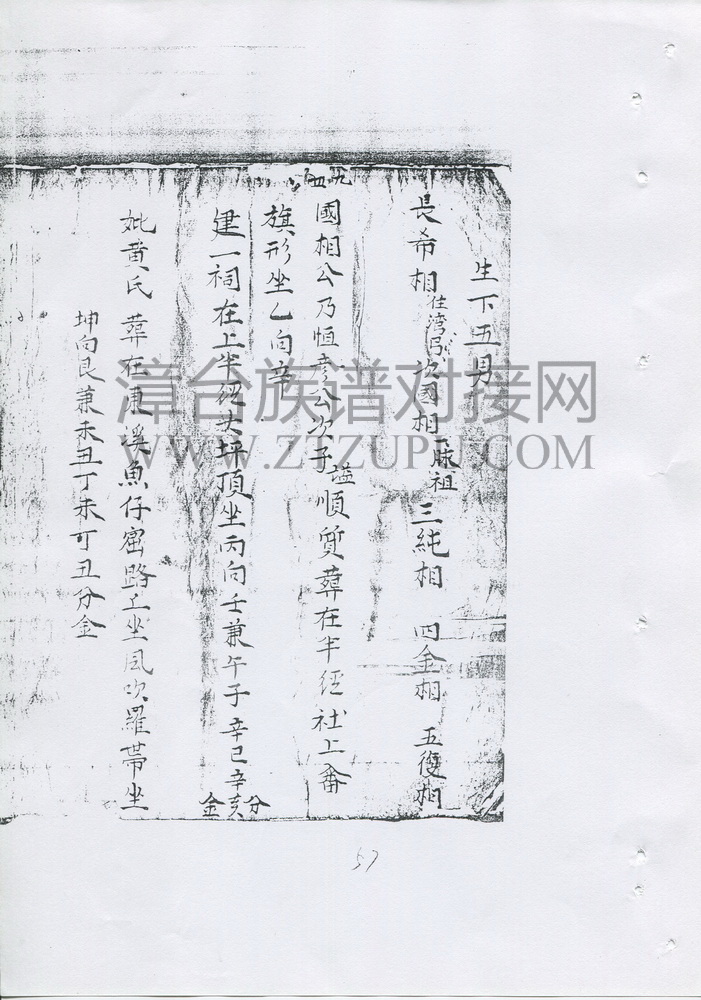 生下五男
長希相 住湾 次國相 一脉祖 三純相 四金相 五復相
九四
國相公乃恒彦公次子 諡順質 葬在半徑社上畬
旗形坐乙向辛
建一祠在上半徑大坪頂坐丙向壬兼午子辛巳辛亥分金
妣黄氏 葬在東溪魚仔窟路上坐風吹羅帶坐
坤向艮兼未丑丁未可丑分金
漳台族谱对接网
WWW.ZTZUPU.COM
57